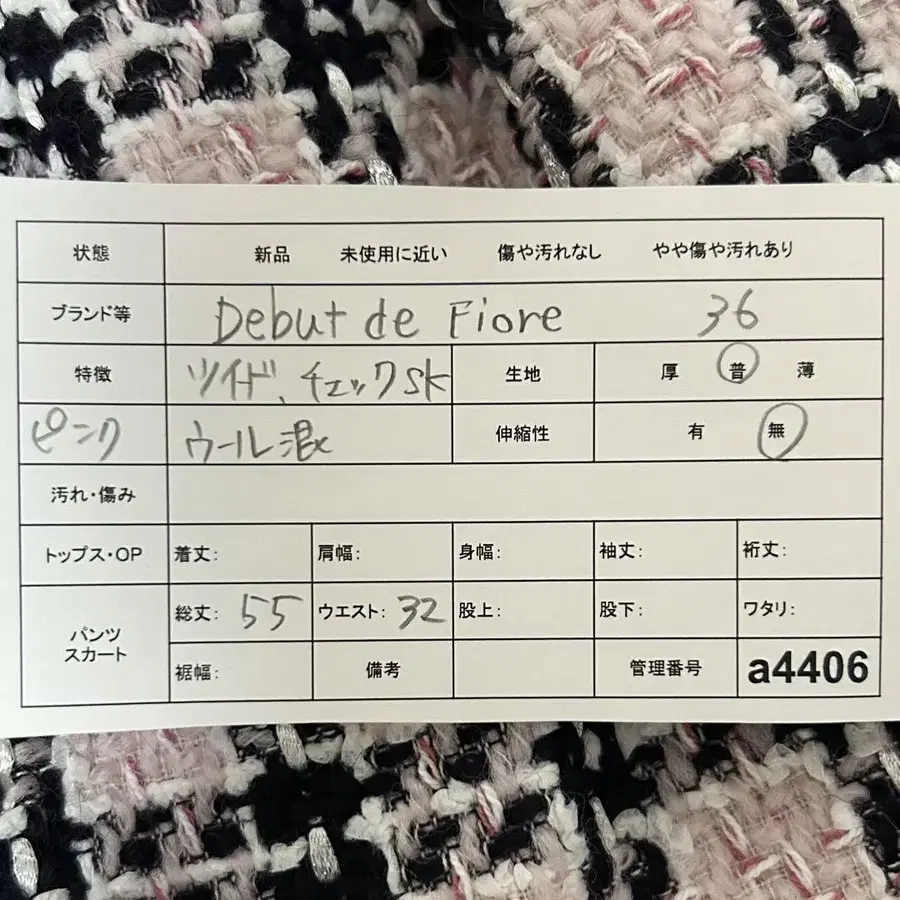 状態 新品 未使用に近い 傷や汚れなし やや傷や汚れあり
ブランド等 Debut de Fiore 36
特徴 ツイド、チェックSK 生地 厚 普 薄
ピンク ウール混 伸縮性 有 無
汚れ・傷み
トップス・OP 着丈: 肩幅: 身幅: 袖丈: 裄丈:
パンツ スカート 総丈: 55 ウエスト: 32 股上: 股下: ワタリ:
裾幅: 備考 管理番号 a4406